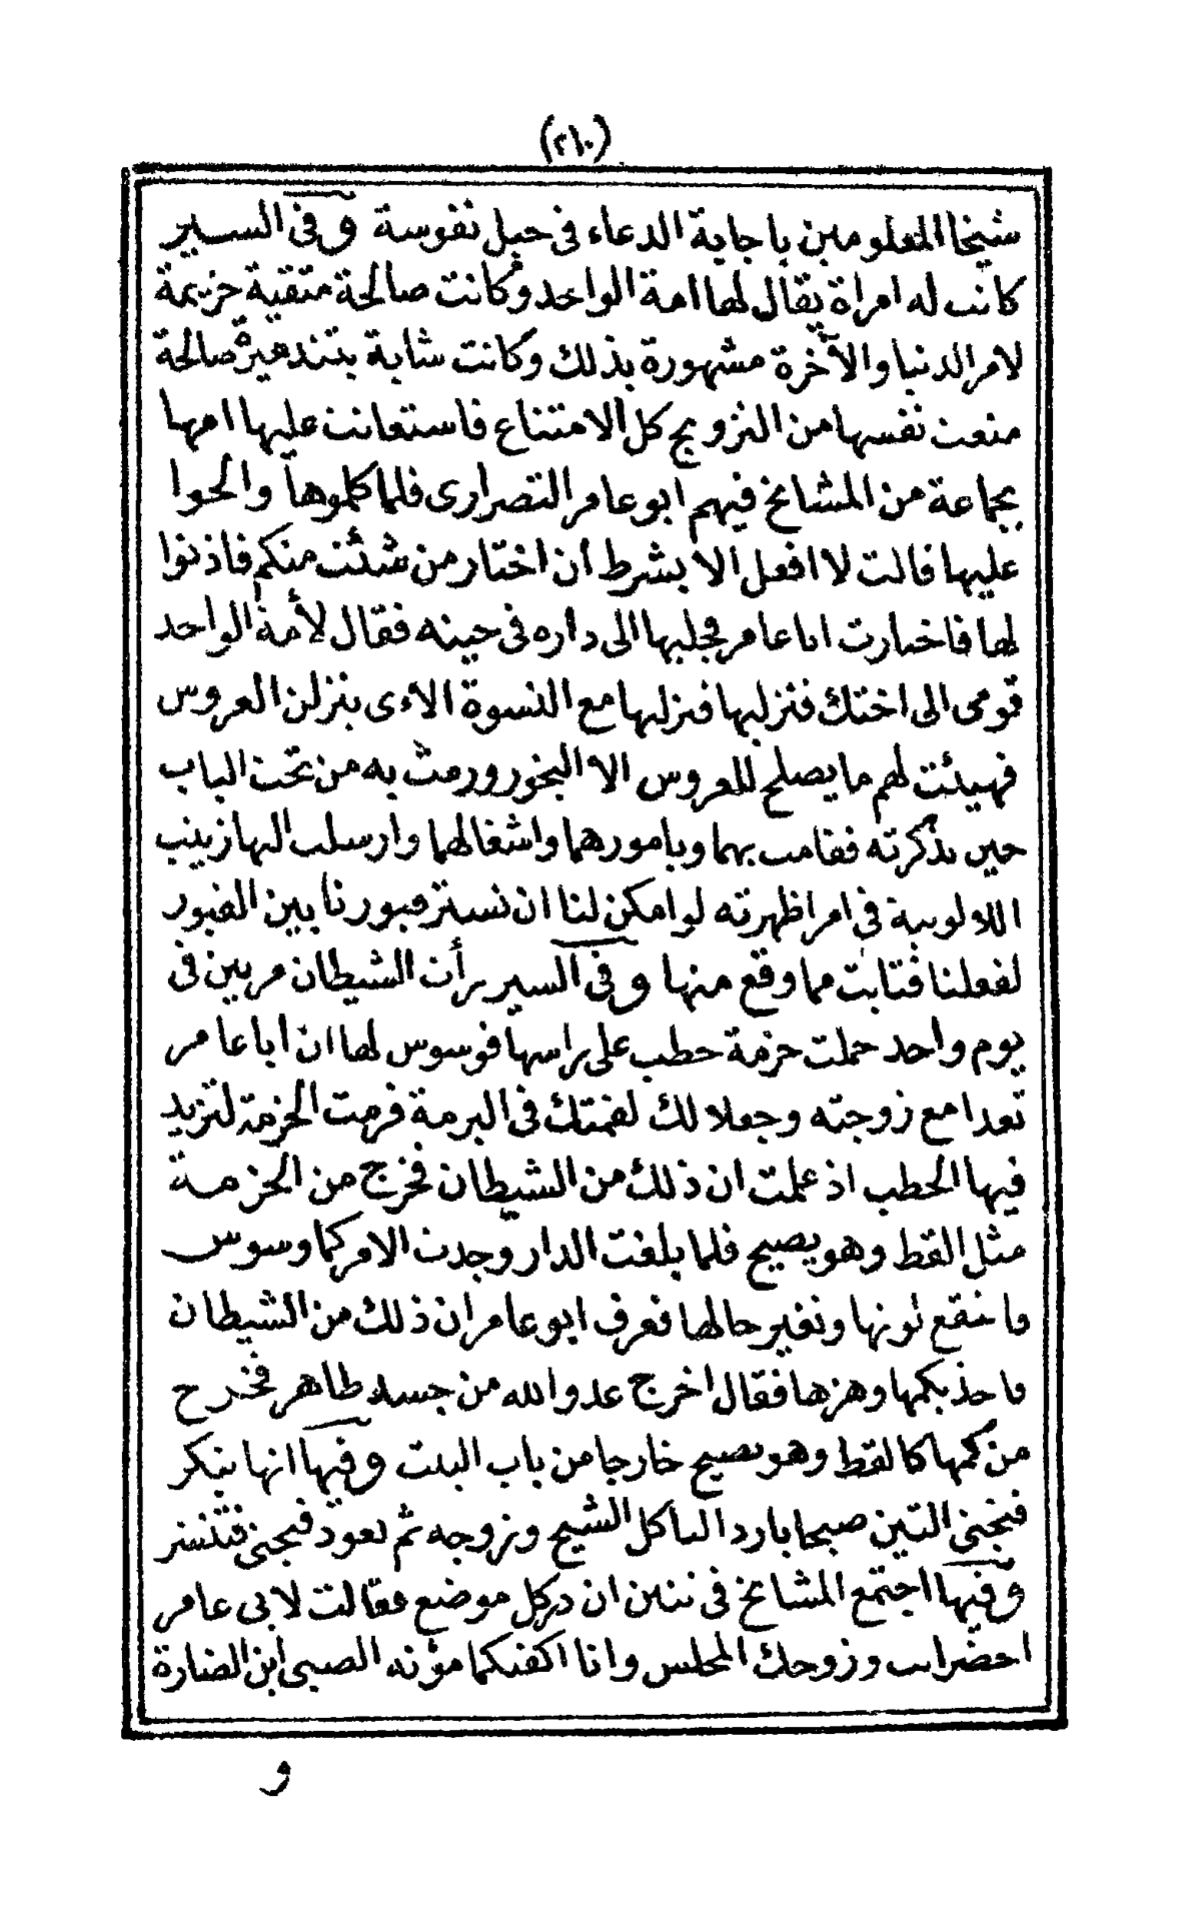 (٢١٠)
شيخا المعلومين باجابة الدعاء فى جبل نفوسة وفى السير
كانت له امراة يقال لها امة الواحد وكانت صالحة متقية حزيمة
لامر الدنيا والآخرة مشهورة بذلك وكانت شابة بتندميرة صالحة
منعت نفسها من التزويج كل الامتناع فاستعانت عليها امها
بجماعة من المشايخ فيهم ابو عامر التصرارى فلما كلموها والحوا
عليها قالت لا افعل الا بشرط أن اختار من شئت منكم فاذنوا
لها فاختارت ابا عامر فجلبها الى داره فى حينه فقال لأمة الواحد
قومى الى اختك فنزليها فنزلها مع النسوة الاءى ينزلن العروس
فهيئت لهم ما يصلح للعروس الا البخور ورمت به من تحت الباب
حين تذكرته فقامت بهما وبامورهما واشغالهما وارسلت اليها زينب
اللالوتية فى امر اظهرته لو امكن لنا ان نستر قبورنا بين القبور
لفعلنا فتابت مما وقع منها وفى السير أن الشيطان مر بين فى
يوم واحد حملت حزمة حطب على راسها فوسوس لها ان ابا عامر
تعدا مع زوجته وجعلا لك لقمتك فى البرمة فرمت الحزمة لتزيد
فيها الحطب اذ علمت ان ذلك من الشيطان فخرج من الحزمة
مثل القط وهو يصيح فلما بلغت الدار وجدت الامر كما وسوس
فانتقع لونها وتغير حالها فعرف ابو عامر ان ذلك من الشيطان
فاخذ بكمها وهزها فقال اخرج عدو الله من جسد طاهر فخرج
من كمها كالقط وهو يصيح خارجا من باب البيت وفيها انها تبكر
فتجنى التين صبحا باردا لياكل الشيخ وزوجه ثم تعود فتجنى فتنشر
وفيها اجتمع المشايخ فى ان دركل موضع فقالت لابى عامر
احضر انت وزوجك المجلس وانا اكفيكما مؤنة الصبى ابن الضارة
و